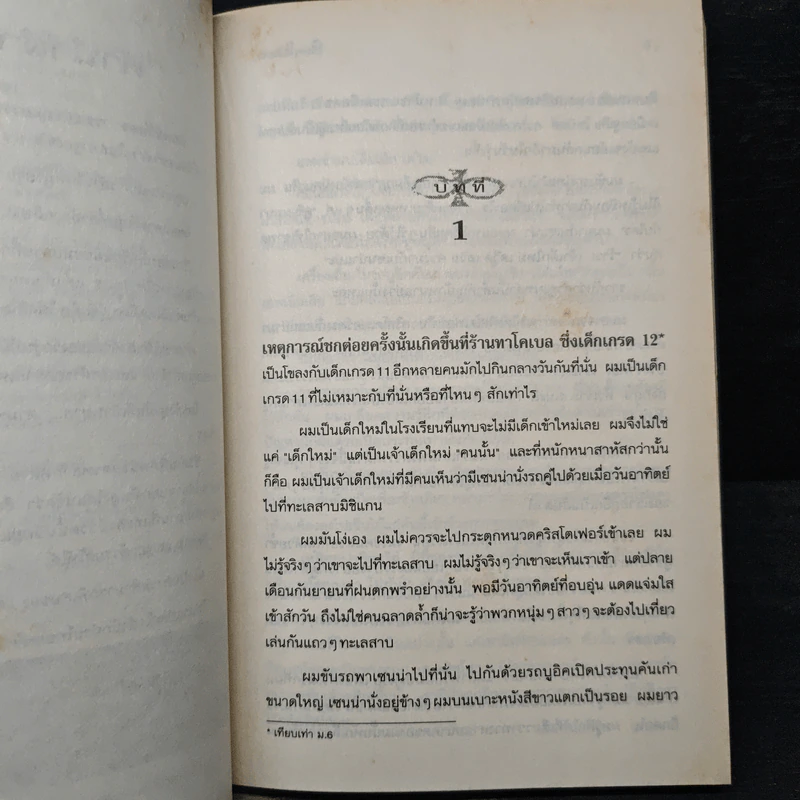 บทที่
1
เหตุการณ์ชกต่อยครั้งนั้นเกิดขึ้นที่ร้านทาโคเบล ซึ่งเด็กเกรด 12*
เป็นโขลงกับเด็กเกรด 11 อีกหลายคนมักไปกินกลางวันกันที่นั่น ผมเป็นเด็ก
เกรด 11 ที่ไม่เหมาะกับที่นั่นหรือที่ไหนๆ สักเท่าไร
ผมเป็นเด็กใหม่ในโรงเรียนที่แทบจะไม่มีเด็กเข้าใหม่เลย ผมจึงไม่ใช่
แค่ "เด็กใหม่" แต่เป็นเจ้าเด็กใหม่ "คนนั้น" และที่หนักหนาสาหัสกว่านั้น
ก็คือ ผมเป็นเจ้าเด็กใหม่ที่มีคนเห็นว่ามีเซนน่านั่งรถคู่ไปด้วยเมื่อวันอาทิตย์
ไปที่ทะเลสาบมิชิแกน
ผมมันโง่เอง ผมไม่ควรจะไปกระตุกหนวดคริสโตเฟอร์เข้าเลย ผม
ไม่รู้จริงๆ ว่าเขาจะไปที่ทะเลสาบ ผมไม่รู้จริงๆ ว่าเขาจะเห็นเราเข้า แต่ปลาย
เดือนกันยายนที่ฝนตกพรำอย่างนั้น พอมีวันอาทิตย์ที่อบอุ่น แดดแจ่มใส
เข้าสักวัน ถึงไม่ใช่คนฉลาดล้ำก็น่าจะรู้ว่าพวกหนุ่มๆ สาวๆ จะต้องไปเที่ยว
เล่นกันแถวๆ ทะเลสาบ
ผมขับรถพาเซนน่าไปที่นั่น ไปกันด้วยรถบูอิคเปิดประทุนคันเก่า
ขนาดใหญ่ เซนน่านั่งอยู่ข้างๆ ผมบนเบาะหนังสีขาวแตกเป็นรอย ผมยาว
* เทียบเท่า ม.6